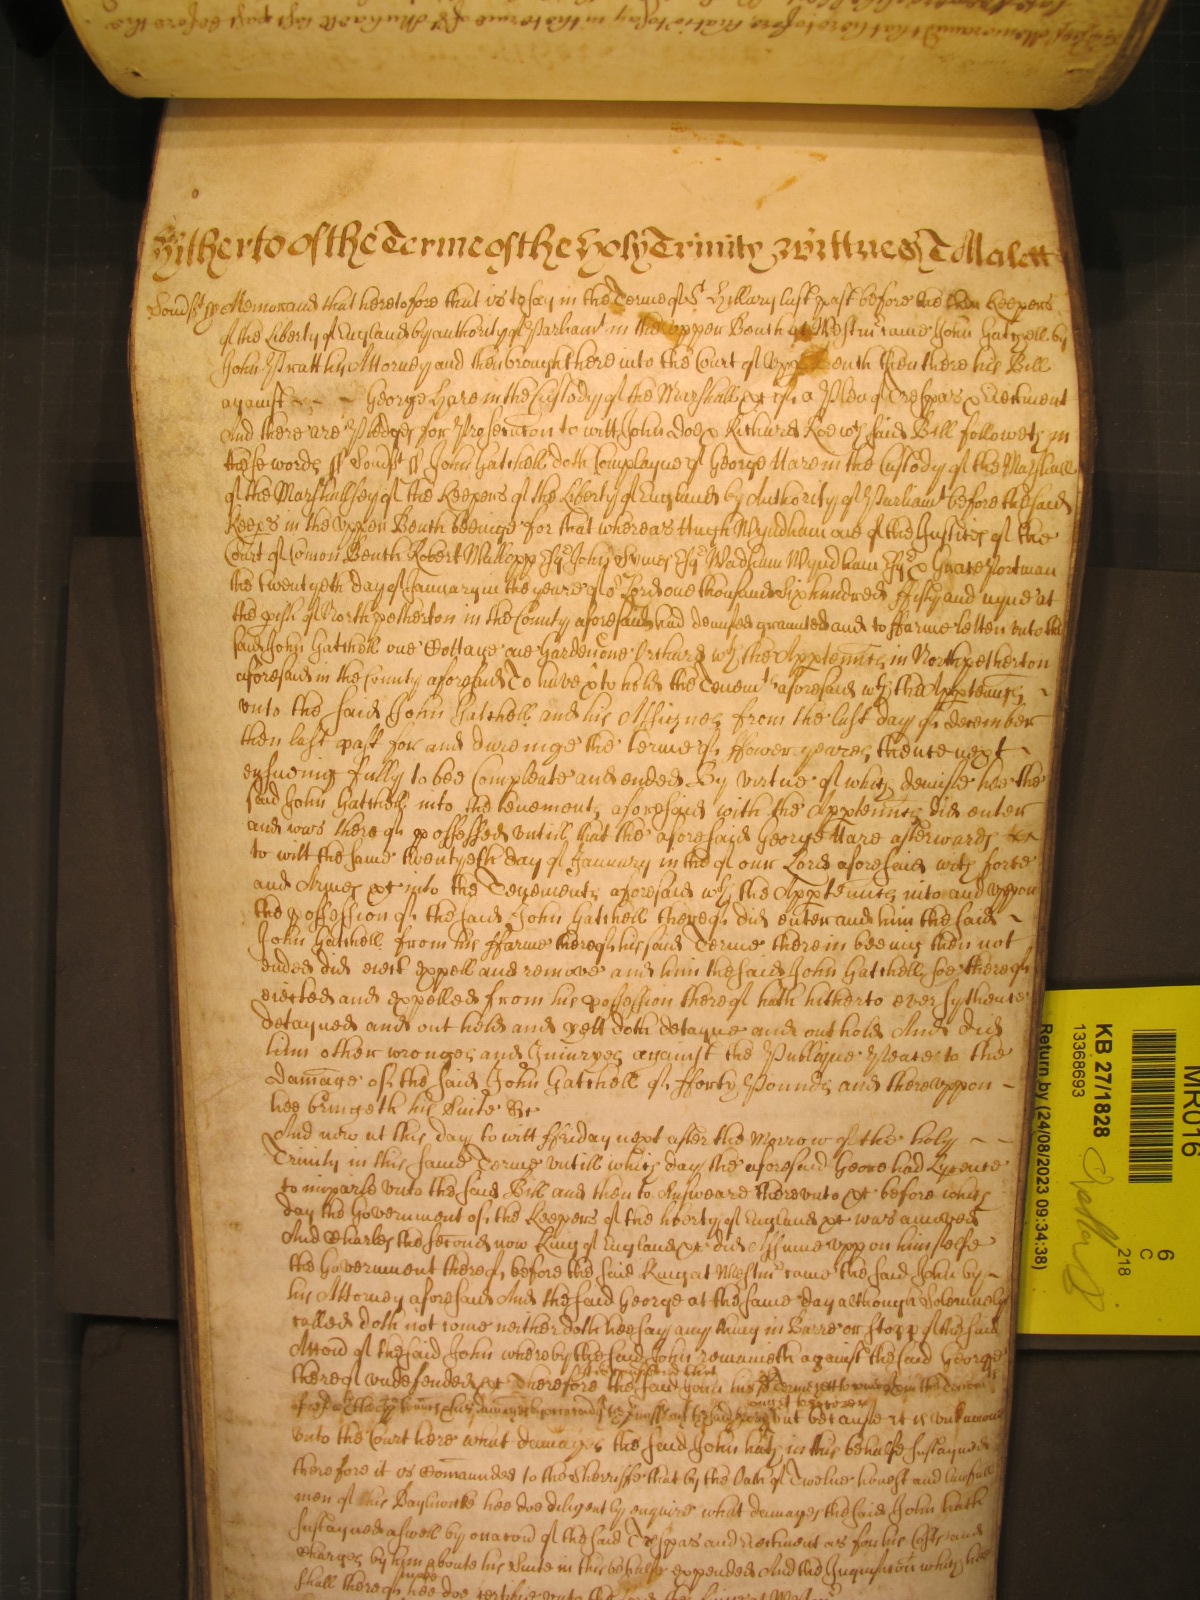 Hitherto of the Terme of the Holy Trinity Wittnes T Malett
Somst ss Memorand that heretofore that is to say in the Terme of St Hillary last past before the Keepers
of the Liberty of England by authority of Parliamt in the upper Bench at Westmr came John Gatchell by
John Pratt his Attorney and then brought here into the Court of upper Bench then there his Bill
against George Hare in the Custody of the Marshall &c of a Plea of Trespas & Eiectment
And there are Pledges for Prosecucon to witt John Doe & Richard Roe wch said Bill followeth in
these words ss Somst ss John Gatchell doth Complayne of George Hare in the Custody of the Marshall
of the Marshallsey of the Keepers of the Liberty of England by Authority of Parliamt before the said
Keeps in the upper Bench beeinge for that whereas Hugh Wyndham one of the Justices of the
Court of Comon Bench Robert Mallopp Esqr John Symes Esqr Wadham Wyndham Esqr & Grace Portman
the twentyeth day of January in the yeare of or Lord one thousand Six hundred ffifty and nyne at
the pish of Northpetherton in the County aforesaid had demised graunted and to ffarme letten unto the
said John Gatchell one Cottage one Garden one Orchard wth the Apptenncs in Northpetherton
aforesaid in the County aforesaid To have & to hold the Tenemts aforesaid wth the Apptenncs
unto the said John Gatchell and his Assignes from the last day of december
then last past for and dureinge the terme of ffower yeares thence next
ensueing fully to bee Compleate and ended By virtue of which demise hee the
said John Gatchell into the tenements aforesaid with the Apptenncs did enter
and was thereof possessed untill that the aforesaid George Hare afterwards
to witt the same twentyeth day of January in the of our Lord aforesaid with force
and Armes &c into the Tenements aforesaid wth the Apptenncs into and uppon
the possession of the said John Gatchell thereof did enter and him the said
John Gatchell from his ffarme thereof his said Terme therein beeing then not
ended did eiect expell and remove and him the said John Gatchell soe thereof
eiected and expelled from his possession thereof hath hitherto ever sythence
detayned and out held and yett doth detayne and out hold And did
him other wronges and Iniuryes against the Publique Peace to the
damage of the said John Gatchell of fforty Pounds and thereuppon
hee bringeth his Suite &c
And now at this day to witt ffriday next after the Morrow of the holy
Trinity in this same Terme untill which day the aforesaid Geore had Lycence
to imparle unto the said Bill and then to Answeare thereunto &c before which
day the Government of the Keepers of the liberty of England &c was amoved
And Charles the second now King of England &c did Assume uppon himselfe
the Government thereof, before the said King at Westmr came the said John by
his Attorney aforesaid And the said George at the same day although Solemnely
called doth not come neither doth hee say any thing in Barre or stopp of the said
Accon of the said John whereby the said John remaineth against the said George
thereof undefended &c Therefore the said John his
ought to recover but because it is unknowne
unto the Court here what damages the said John hath in this behalfe sustayned
therefore it is Comaunded to the Sherriffe that by the Oath of Twelve honest and lawfull
men of his Baylywicke hee doe diligently enquire what damages the said John hath
sustayned aswell by occacon of the said Trespas and Eiectment as for his Costs and
Charges by him aboute his Suite in this behalfe expended And the Inquisicon which hee
shall thereof make hee doe certifie unto the Lord the King at Westmr
KB 27/1828
13368693
Return by (24/08/2023 09:34:38)
MR016
6
C
218